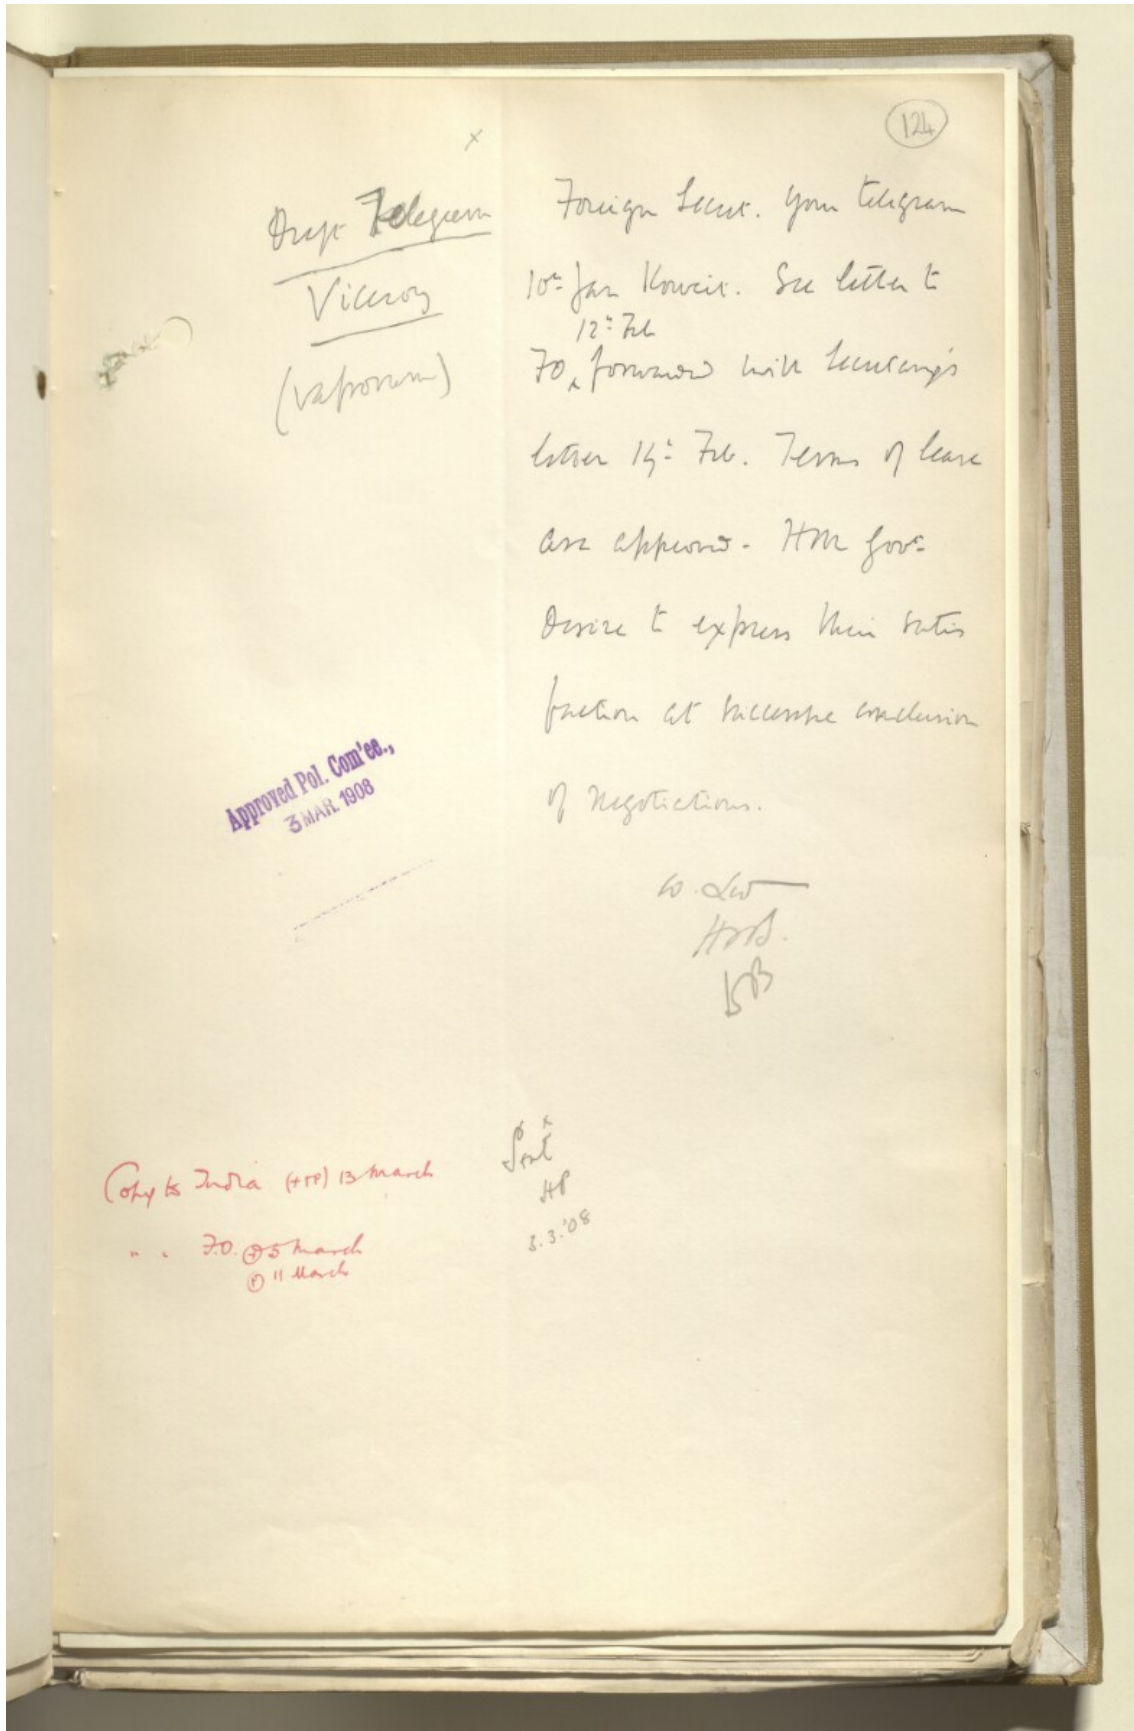 124
x
Draft Telegram
Viceroy
Foreign Secret. Your telegram
10th Jan Koweit. See letter to
12th Feb
FO, forwarded with Secretary's
letter 14th Feb. Terms of lease
are approved. HM Govt
desire to express their satis
faction at successful conclusion
of negotiations.
Approved Pol. Com'ee.,
3 MAR. 1908
Sent
HP
3.3.'08
Copy to India 13 March
" " F.O. 5 March
11 March